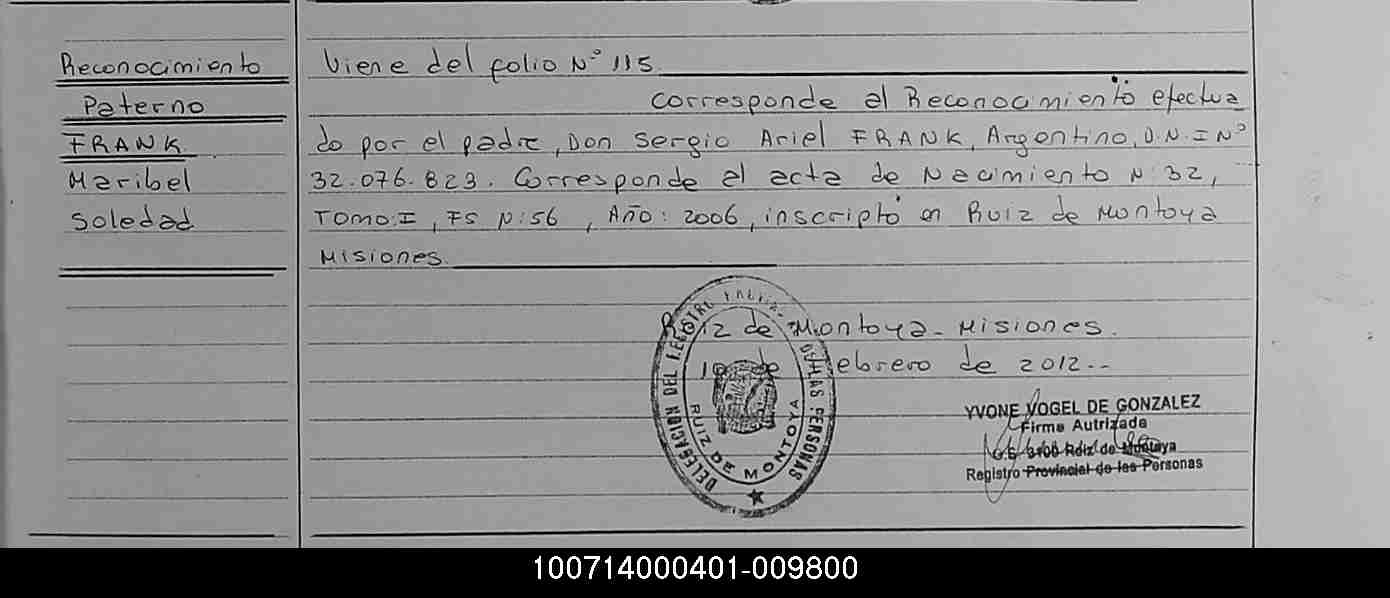 Reconocimiento
Paterno
FRANK
Maribel
Soledad
Viene del folio N° 115
Corresponde al Reconocimiento efectua
do por el padre, Don Sergio Ariel FRANK, Argentino, D.N.I N°
32.076.823. Corresponde al acta de Nacimiento N: 32,
TOMO: I, Fs N: 56, Año: 2006, inscripto en Ruiz de Montoya
Misiones
Ruiz de Montoya - Misiones.
10 de Febrero de 2012--
DELEGACION DEL REGISTRO DE LAS PERSONAS
RUIZ DE MONTOYA
YVONE VOGEL DE GONZALEZ
Firma Autrizada
Ruiz de Montoya
Registro Provincial de las Personas
100714000401-009800